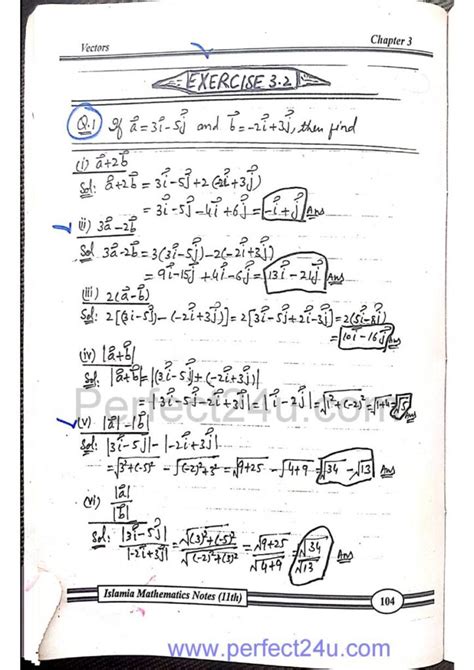 Vectors
Chapter 3
EXERCISE 3.2
Q.1 If a⃗ = 3i⃗ - 5j⃗ and b⃗ = -2i⃗ + 3j⃗, then find
(i) a⃗ + 2b⃗
Sol: a⃗ + 2b⃗ = 3i⃗ - 5j⃗ + 2(-2i⃗ + 3j⃗)
= 3i⃗ - 5j⃗ - 4i⃗ + 6j⃗ = -i⃗ + j⃗ Ans
(ii) 3a⃗ - 2b⃗
Sol 3a⃗ - 2b⃗ = 3(3i⃗ - 5j⃗) - 2(-2i⃗ + 3j⃗)
= 9i⃗ - 15j⃗ + 4i⃗ - 6j⃗ = 13i⃗ - 21j⃗ Ans
(iii) 2(a⃗ - b⃗)
Sol: 2[(3i⃗ - 5j⃗) - (-2i⃗ + 3j⃗)] = 2[3i⃗ - 5j⃗ + 2i⃗ - 3j⃗] = 2(5i⃗ - 8j⃗)
= 10i⃗ - 16j⃗ Ans
(iv) |a⃗ + b⃗|
Sol: |a⃗ + b⃗| = |(3i⃗ - 5j⃗) + (-2i⃗ + 3j⃗)|
= |3i⃗ - 5j⃗ - 2i⃗ + 3j⃗| = |i⃗ - 2j⃗| = √1²+(-2)² = √1+4 = √5
Perfect24u.com
(v) |a⃗| - |b⃗|
Sol: |3i⃗ - 5j⃗| - |-2i⃗ + 3j⃗|
= √3²+(-5)² - √(-2)²+3² = √9+25 - √4+9 = √34 - √13 Ans
(vi) |a⃗| / |b⃗|
Sol: |3i⃗ - 5j⃗| / |-2i⃗ + 3j⃗| = √(3)²+(-5)² / √(-2)²+(3)² = √9+25 / √4+9 = √34 / √13 Ans
Islamia Mathematics Notes (11th)
104
www.perfect24u.com